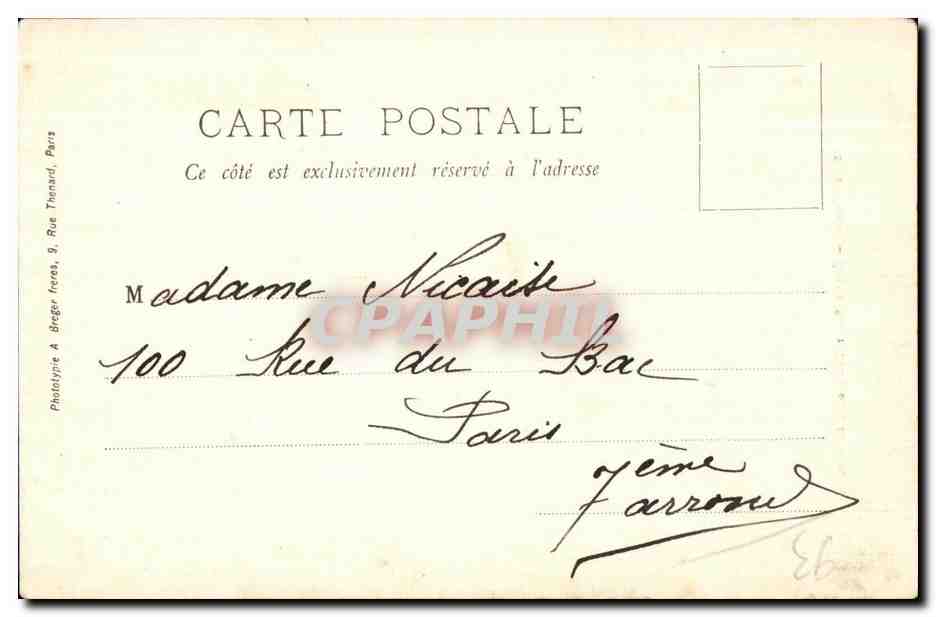 CARTE POSTALE
Ce côté est exclusivement réservé à l'adresse
Phototypie A Breger freres, 9, Rue Thenard, Paris
Madame Nicaise
CPAPHIL
100 Rue du Bac
Paris
7ème
arrond